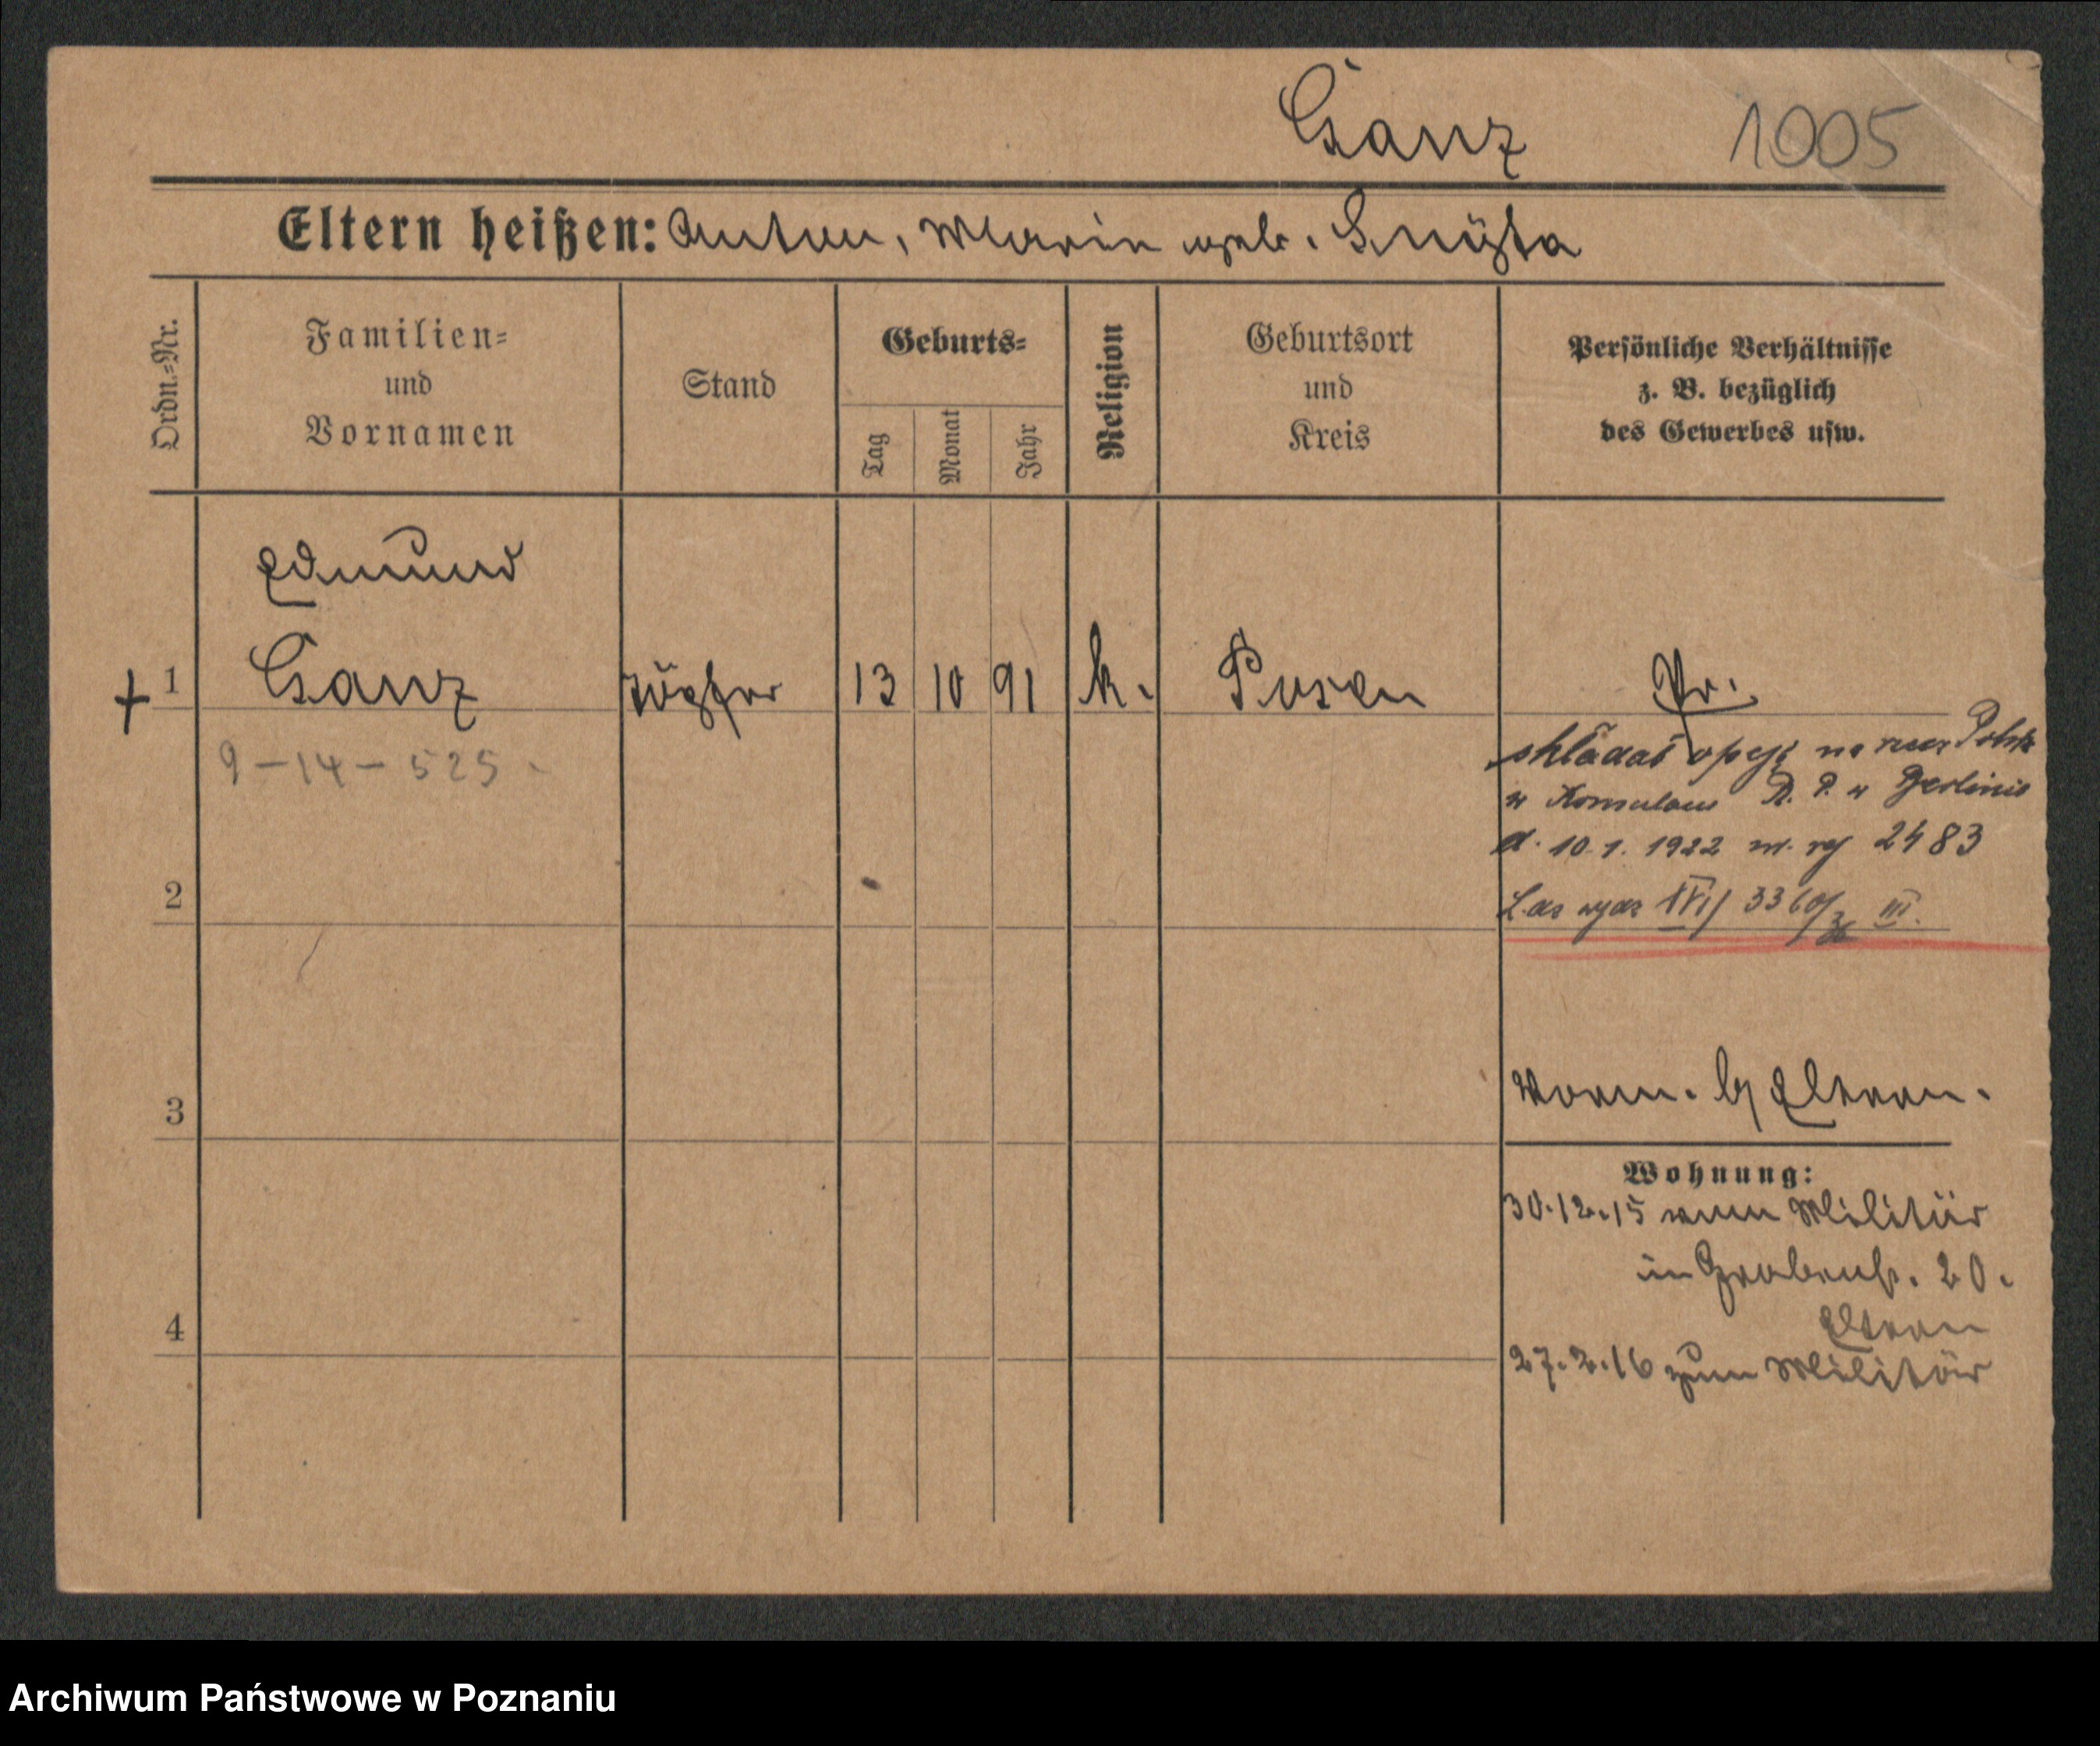 Ganz 1005
Eltern heißen: Anton, Maria geb. Snuszka
Ordn.=Nr.
Familien=
und
Vornamen
Stand
Geburts=
Tag
Monat
Jahr
Religion
Geburtsort
und
Kreis
Persönliche Verhältnisse
z. B. bezüglich
des Gewerbes usw.
Edmund
1 Ganz Töpfer 13 10 91 k. Posen Pr.
9-14-525-
składał opcję na rzecz Polski
w Konsulacie R. P. w Berlinie
d. 10.1.1922 nr. rej 2483
XVI/3360/ III.
2
3
Vorm. b/ Eltern.
Wohnung:
30.12.15 vom Militär
in Grabenstr. 20.
Eltern
4
27.2.16 zum Militär
Archiwum Państwowe w Poznaniu